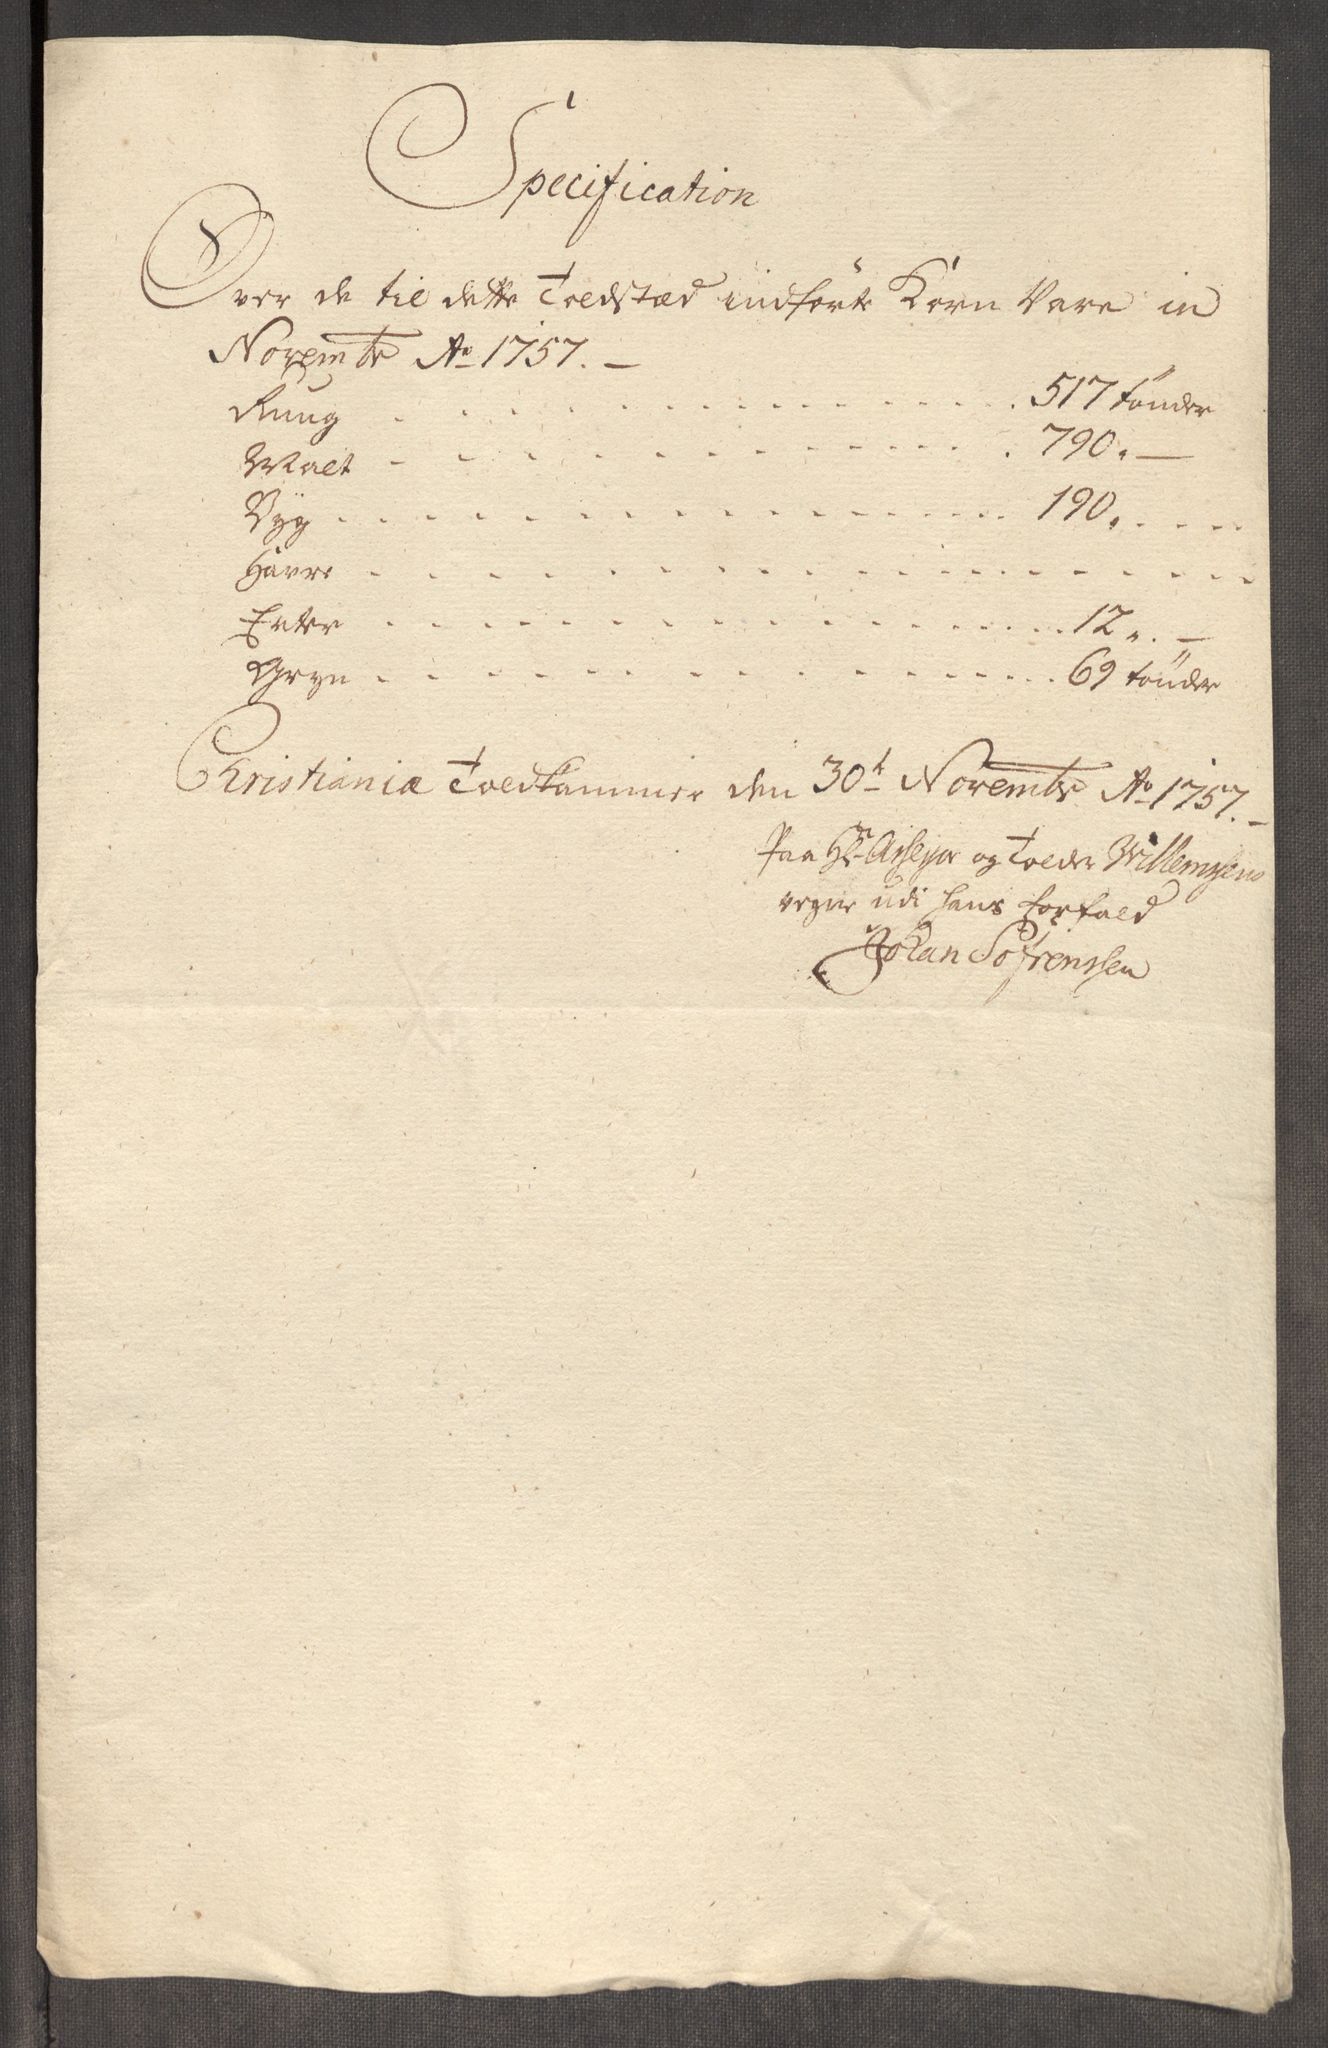 Specification
Over de til dette Toldstæd indførte Korn Vare in
Novembr Ao 1757. –
Rüug . . . . . . . . . . . . . . . . . 517 tønder
Malt - - - - - - - - - - - - . 790. —
Byg . . . . . . . . . . . . . . . . . 190. - - - -
Havre . . . . . . . . . . . . . . . . . . .
Erter . . . . . . . . . . . . . . . . . 12 „. —
Gryn . . . . . . . . . . . . . . . . 69 tønder
Christiania Toldkammer den 30t Novembr Ao 1757. –
Paa Hr Assessor og Tolder Willemsens
vegne udi hans forfald
Johan Sofrenssen